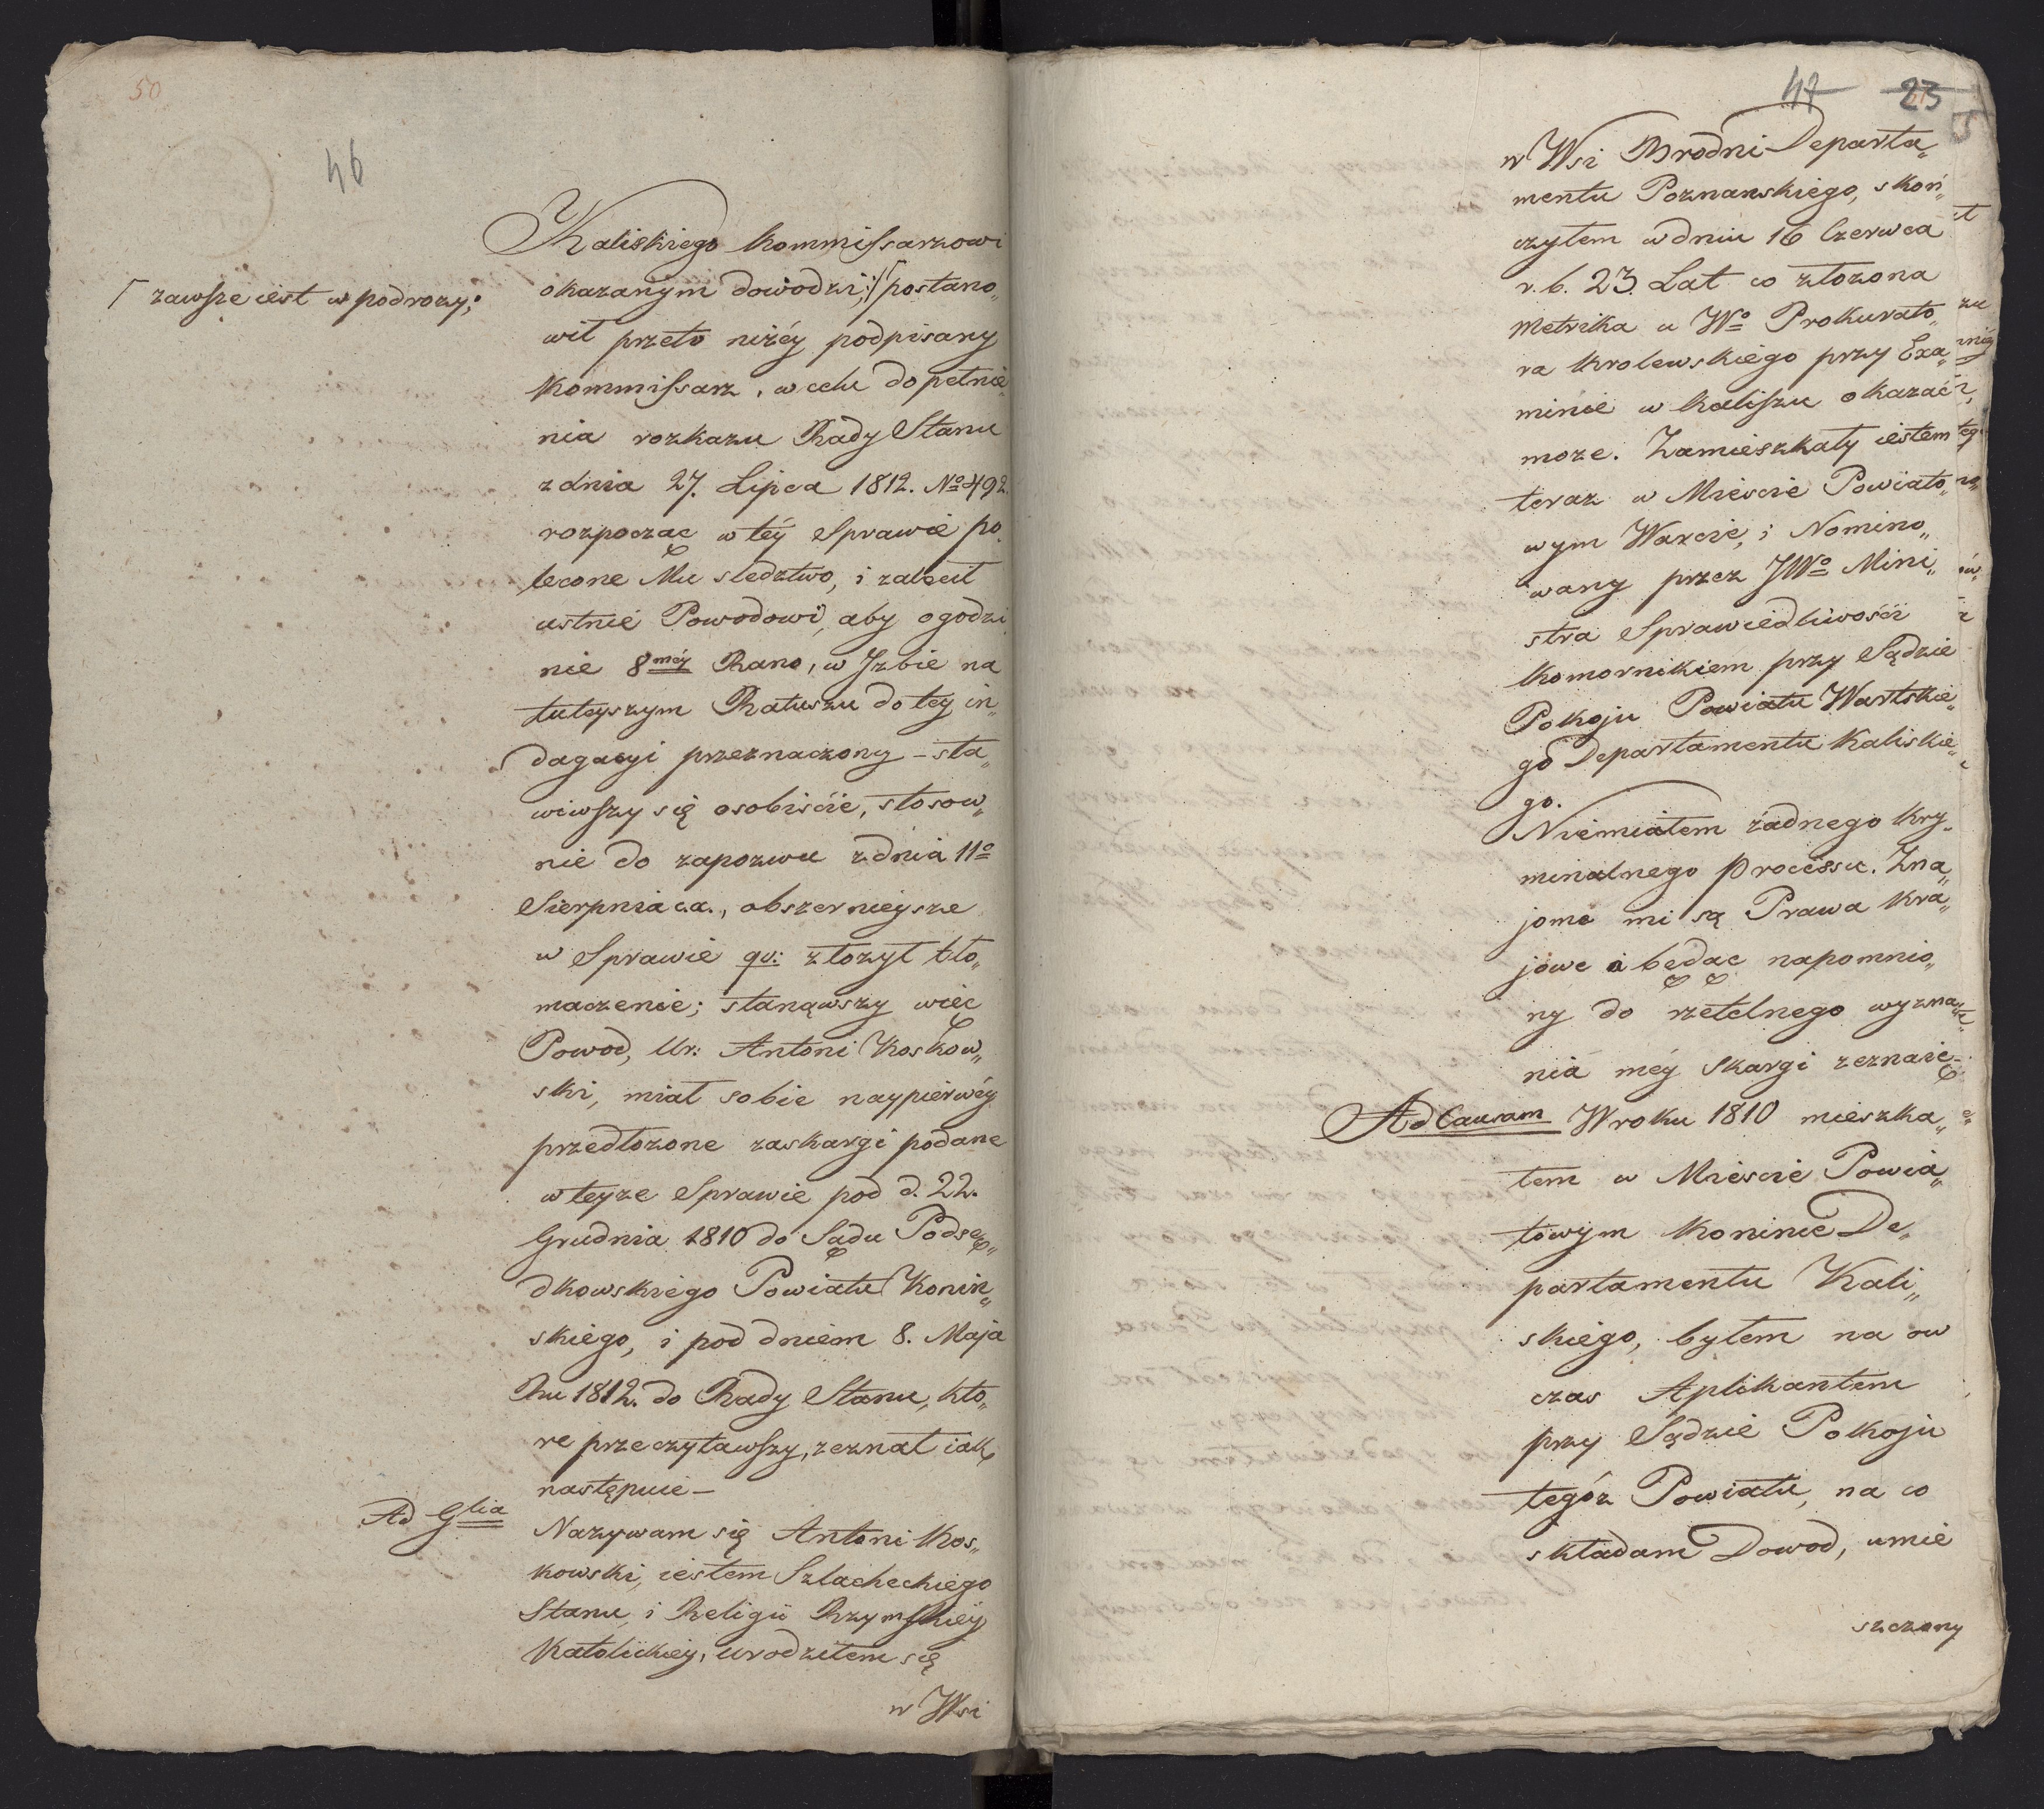 50
46
Kaliskiego Kommissarzowi
⌈ zawsze iest w podrozy;
okazanym dowodzi;/⌈ postano„
wił przeto niżéy podpisany
Kommissarz, w celu dopełnie„
nia rozkazu Rady Stanu
z dnia 27. Lipca 1812. No 492.
rozpocząc w téy Sprawie po„
lecone Mu sledztwo, i zalecił
ustnie Powodowi, aby o godzi„
nie 8méy Rano, w Izbie na
tuteyszym Ratuszu do tey in„
dagacyi przeznaczony – sta„
wiwszy się osobiście, stosow„
nie do zapozwu z dnia 11o
Sierpnia c.a., obszernieysze
w Sprawie qu: złozył tło„
maczenie; stanąwszy więc
Powod, Ur: Antoni Koskow„
ski, miał sobie naypierwéy
przedłozone zaskargi podane
w teyze Sprawie pod d. 22.
Grudnia 1810 do Sądu Podsę„
dkowskiego Powiatu Konin„
skiego, i pod dniem 8. Maja
Ru 1812. do Rady Stanu, kto„
re przeczytawszy, zeznał iak
następuie –
Ad Glia
Nazywam się Antoni Kos„
kowski, iestem Szlacheckiego
Stanu, i Religii Rzymskiéy
Katolickiey, urodziłem się
w Wsi
47 23
w Wsi Brodni Departa„
mentu Poznanskiego, skoń„
czyłem w dniu 16 Czerwca
r. b. 23. Lat co złozona
Metrika u Wo Prokurato„
ra Krolewskiego przy Exa„
minie w Kaliszu okazać
moze. Zamieszkały iestem
teraz w Miescie Powiato„
wym Warcie, i Nomino„
wany przez JWo Mini„
stra Sprawiedliwości
Komornikiem przy Sądzie
Pokoju Powiatu Wartskie„
go Departamentu Kaliskie„
go.
Niemiałem żadnego Kry„
minalnego Processu. Zna„
jome mi są Prawa Kra„
jowe a będąc napomnio„
ny do rzetelnego wyzna„
nia méy Skargi zeznaię –
Ad Causam W roku 1810 mieszka„
łem w Miescie Powia„
towym Koninie De„
partamentu Kali„
skiego, byłem na ow
czas Aplikantem
przy Sądzie Pokoju
tegóz Powiatu, na co
składam Dowod, umie
szczony